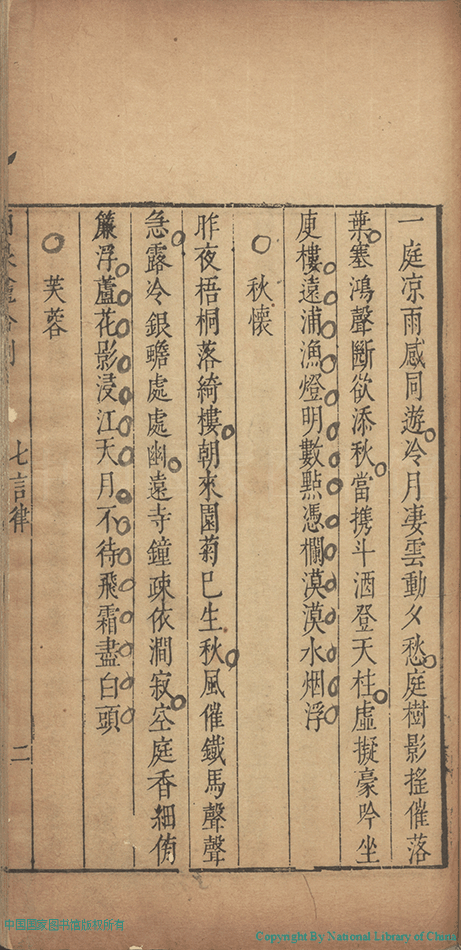 一庭凉雨感同遊冷月凄雲動夕愁庭樹影搖催落
葉塞鴻聲斷欲添秋當携斗酒登天柱虛擬豪吟坐
庾樓遠浦漁燈明數點憑欄漠漠水烟浮
秋懷
昨夜梧桐落綺樓朝來園菊已生秋風催鐵馬聲聲
急露冷銀蟾處處幽遠寺鐘疎依澗寂空庭香細侑
簾浮蘆花影浸江天月不待飛霜盡白頭
芙蓉
七言律
二
中国国家图书馆版权所有
Copyright By National Library of China